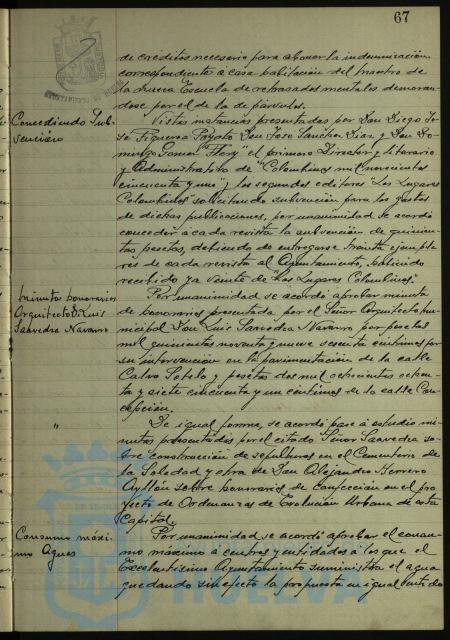 67
de créditos necesario para abonar la indemnización
correspondiente a casa habitación del maestro de
la nueva Escuela de retrasados mentales demoran-
dose por el de la de párvulos.
Concediendo Sub-
vención
Vistas instancias presentadas por Don Diego Jo-
sé Figueroa Poyato Don José Sánchez Díaz y Don Do-
mingo Gómez "Flery" el primero Director y literario
y Administrativo de "Colombinas mil novecientos
cincuenta y uno" y los segundos editores "Los Lugares
Colombinos" solicitando subvención para los gastos
de dichas publicaciones, por unanimidad se acordó
conceder a cada revista la subvención de quinien-
tas pesetas, debiendo de entregarse treinta ejempla-
res de cada revista al Ayuntamiento, habiendo
recibido ya veinte de "Los Lugares Colombinos".
Minutas honorarios
Arquitecto D. Luis
Saavedra Navarro
Por unanimidad se acordó aprobar minuta
de honorarios presentada por el Señor Arquitecto mu-
nicipal Don Luis Saavedra Navarro por pesetas
mil quinientas noventa y nueve sesenta céntimos por
su intervención en la pavimentación de la calle
Calvo Sotelo y pesetas dos mil ochocientas ochen-
ta y siete cincuenta y un céntimos de la calle Con-
cepción.
"
De igual forma, se acordó pase a estudio mi-
nutas presentadas por el citado Señor Saavedra so-
bre construcción de sepulturas en el Cementerio de
la Soledad y otra de Don Alejandro Herrero
Ayllón sobre honorarios de confección en el pro-
yecto de Ordenanzas de Evolución Urbana de esta
Capital.
Consumo máxi-
mo Aguas
Por unanimidad se acordó aprobar el consu-
mo máximo a centros y entidades a los que el
Excelentísimo Ayuntamiento suministra el agua
quedando sin efecto la propuesta en igual sentido
HUELVA